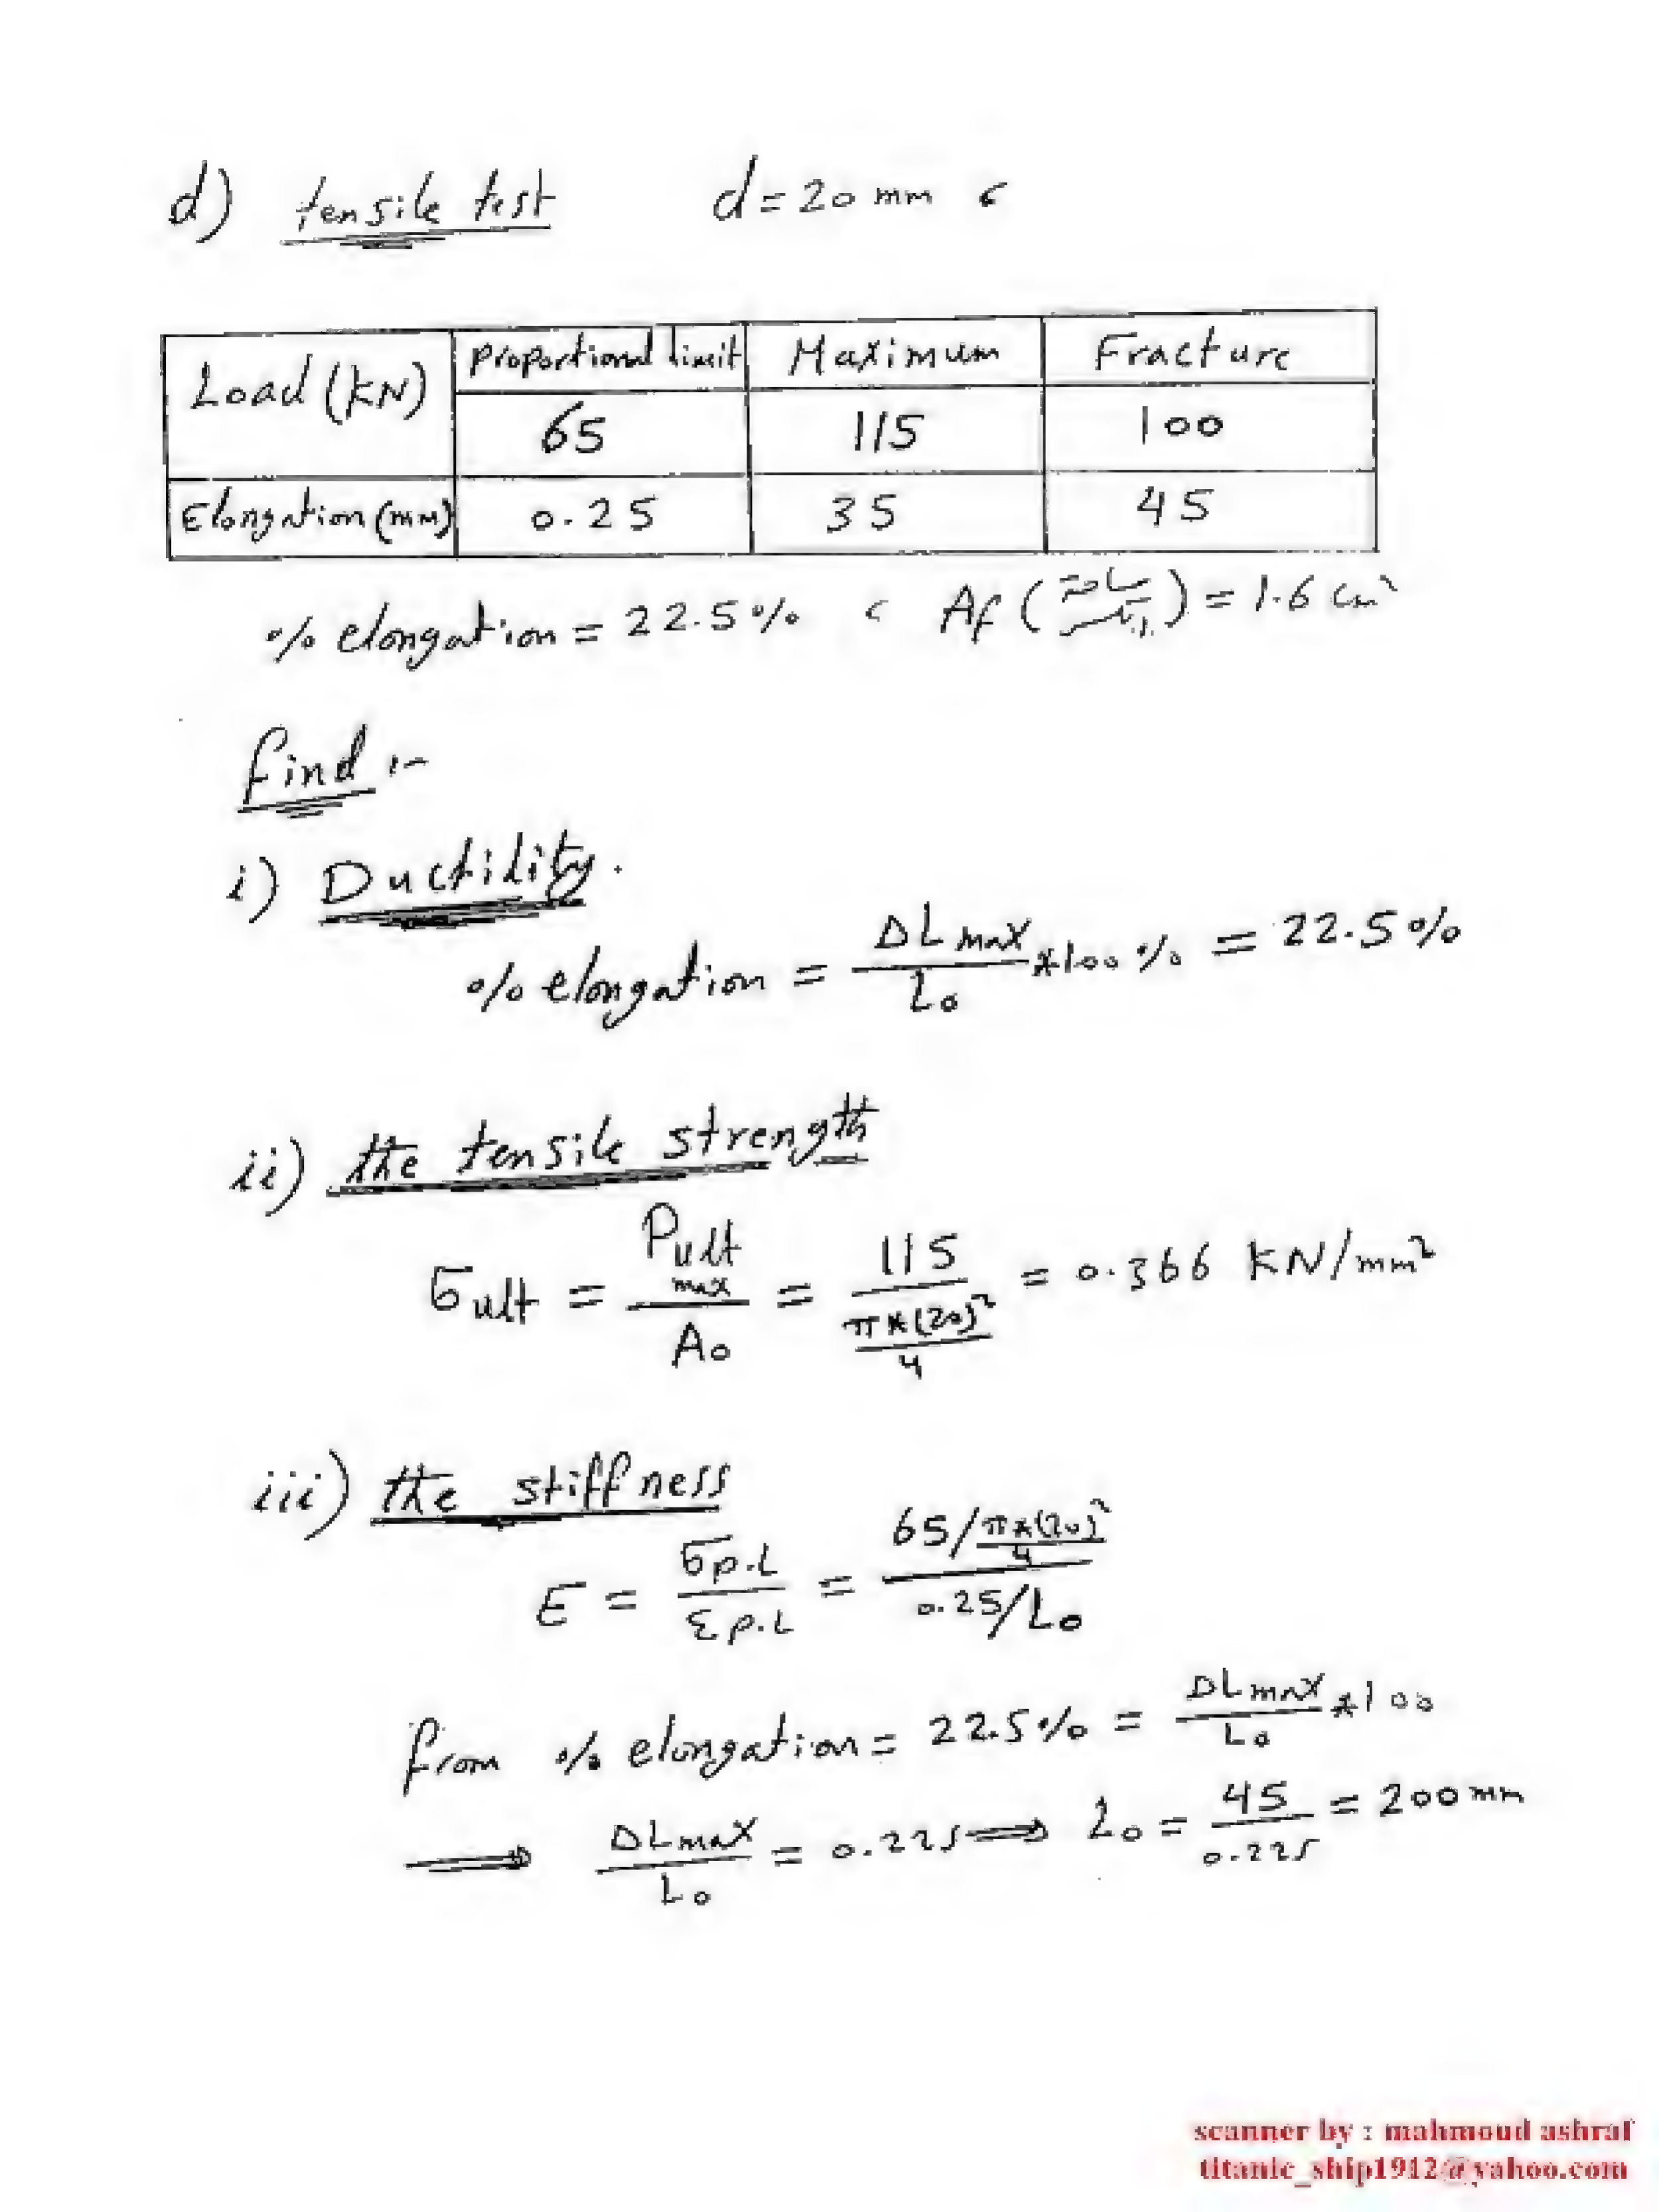 d) tensile test d = 20 mm ،
Load (KN) Proportional limit Maximum Fracture
65 115 100
Elongation (mm) 0.25 35 45
% elongation = 22.5 % ، Af ( ) = 1.6 cm²
find :-
i) Ductility.
% elongation = ΔLmax / Lo * 100 % = 22.5 %
ii) the tensile strength
σult = Pult max / Ao = 115 / (π*(20)² / 4) = 0.366 KN/mm²
iii) the stiffness
E = σp.L / εp.L = (65 / (π*(20)² / 4)) / (0.25 / Lo)
from % elongation = 22.5 % = ΔLmax / Lo * 100
⟹ ΔLmax / Lo = 0.225 ⟹ Lo = 45 / 0.225 = 200 mm
scanner by : mahmoud ashraf
titanic_ship1912@yahoo.com